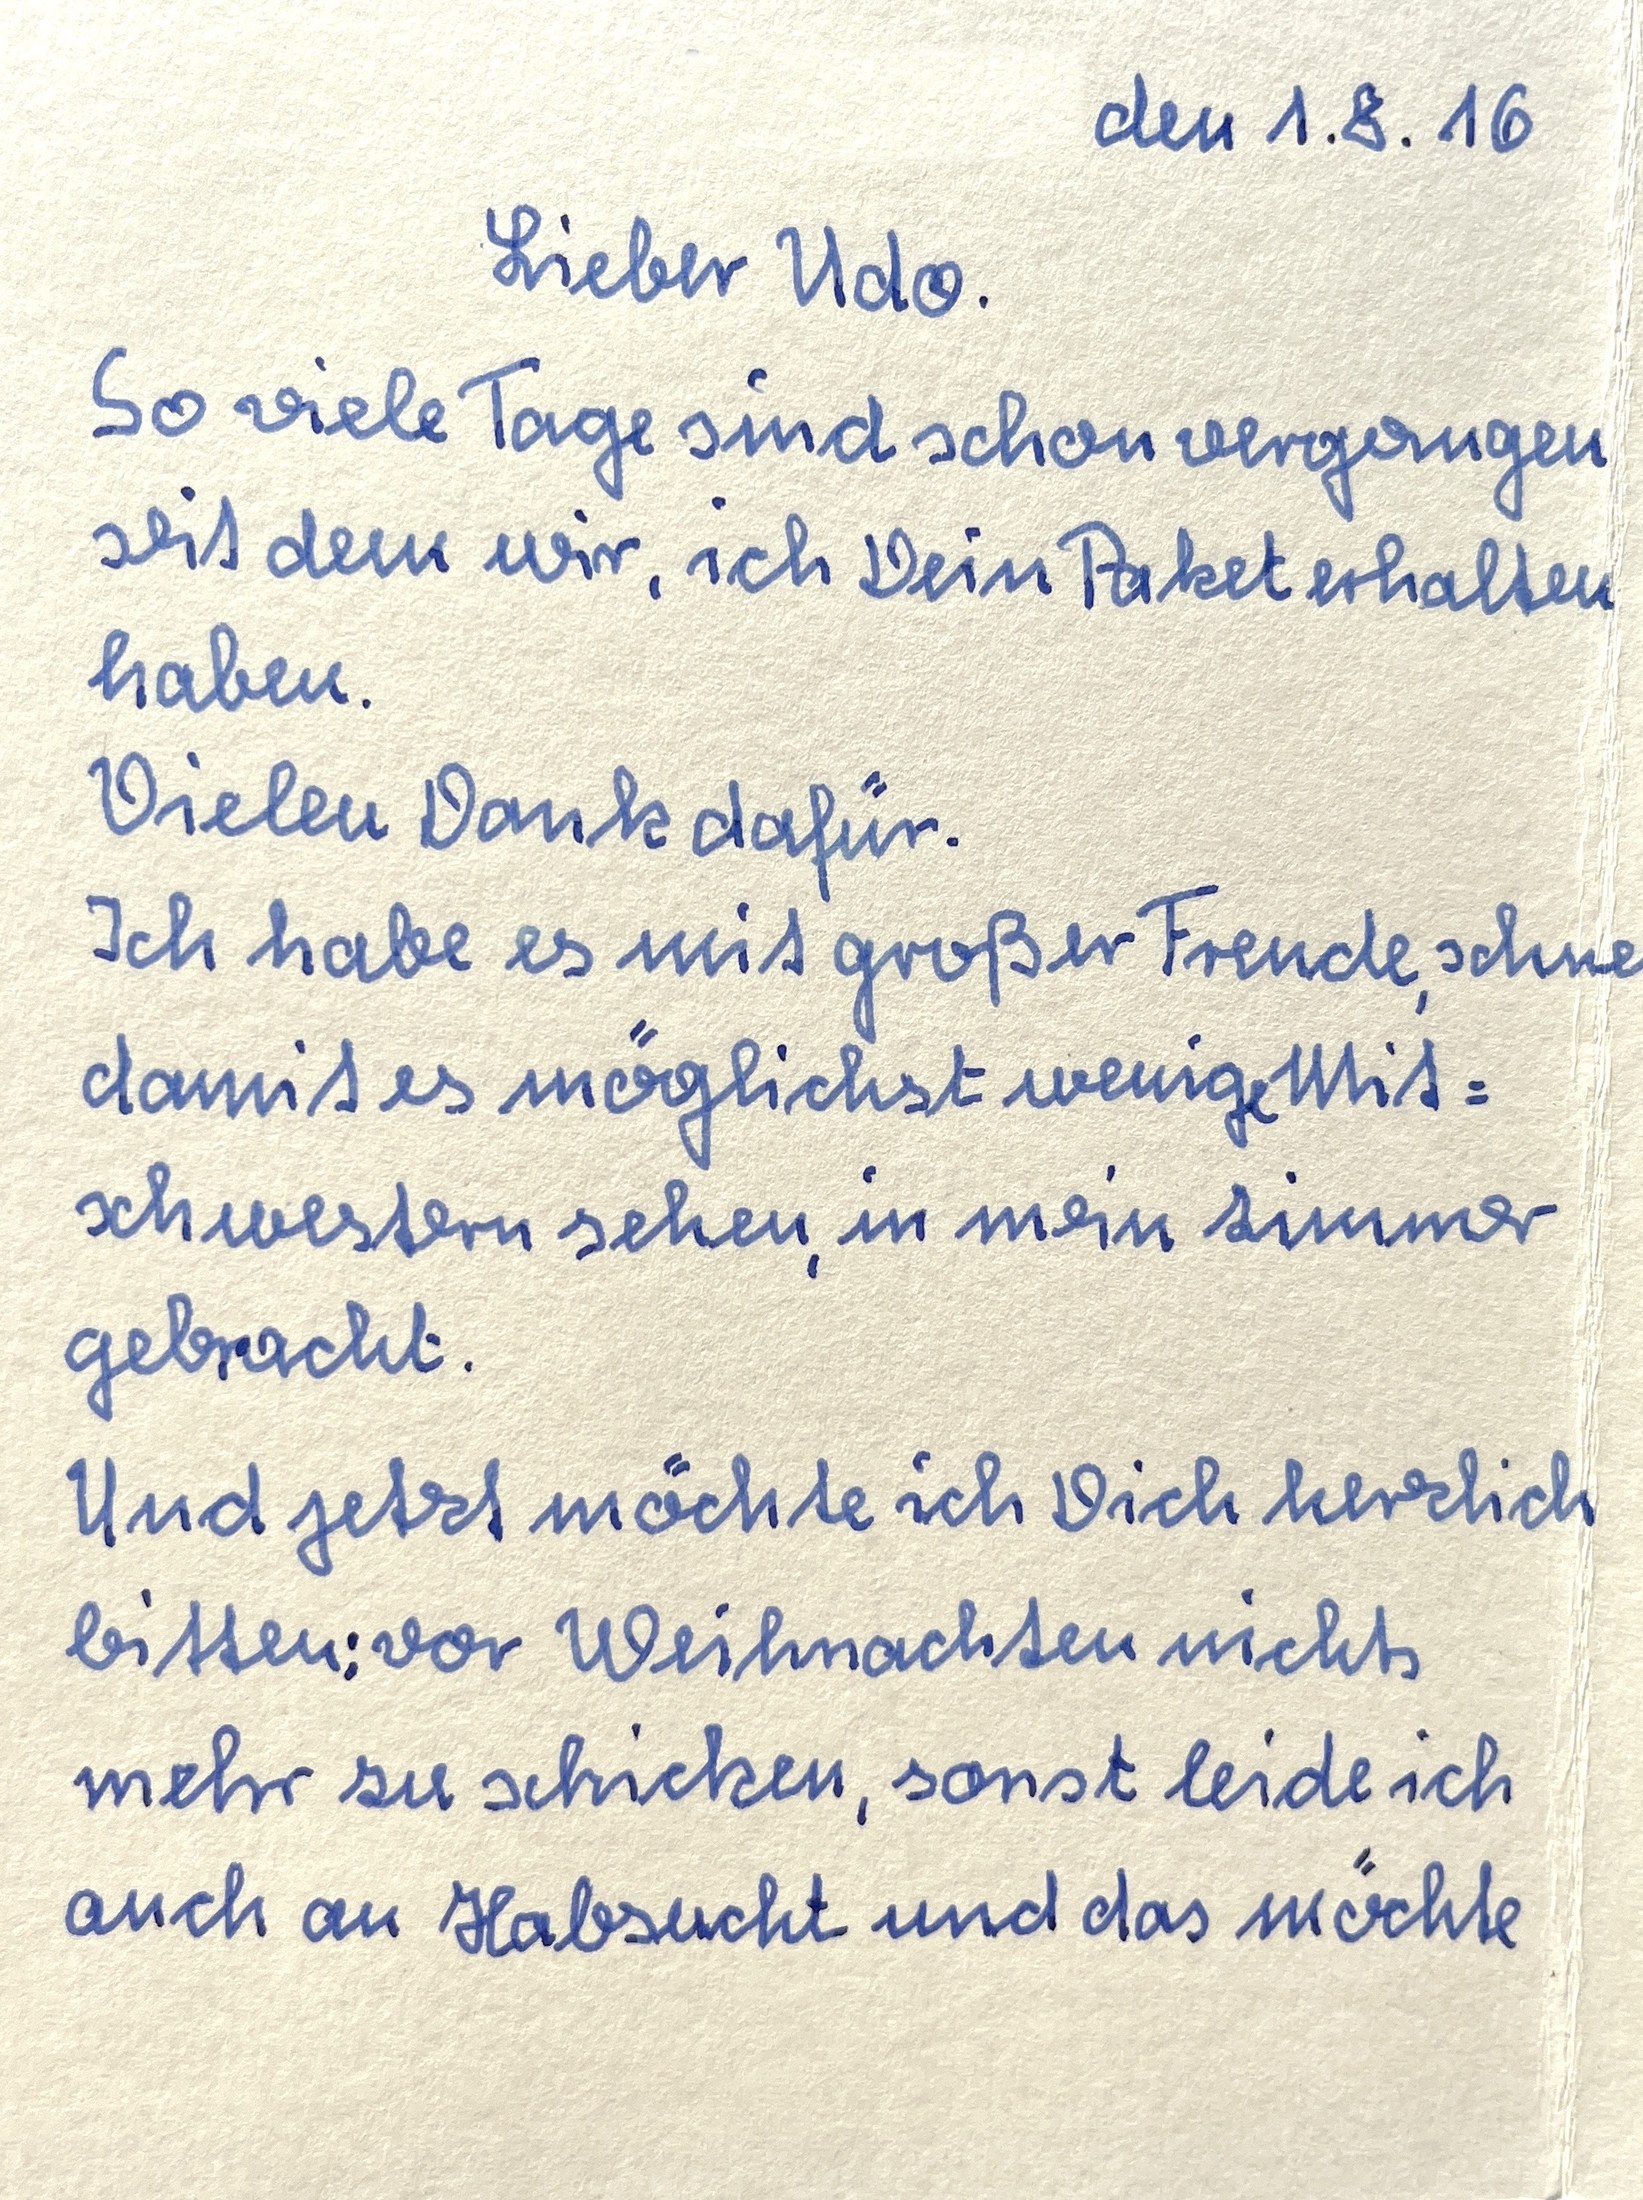 den 1.8.16
Lieber Udo.
So viele Tage sind schon vergangen
seit dem wir, ich Dein Paket erhalten
haben.
Vielen Dank dafür.
Ich habe es mit großer Freude, schne
damit es möglichst wenige Mit=
schwestern sehen, in mein Zimmer
gebracht.
Und jetzt möchte ich Dich herzlich
bitten: vor Weihnachten nichts
mehr zu schicken, sonst leide ich
auch an Habsucht und das möchte